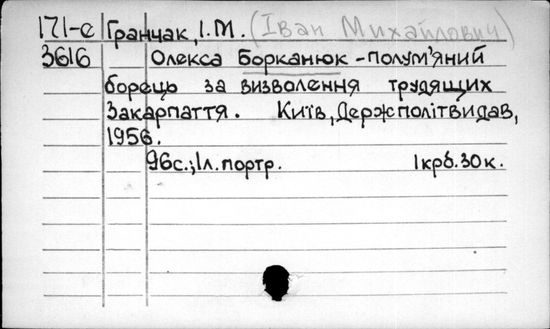 171-е Гранчак, І.М. (Іван Михайлович)
3616 Олекса Борканюк - полум'яний
борець за визволення трудящих
Закарпаття. Київ, Держполітвидав,
1956.
96с.; 1л. портр. 1крб. 30к.